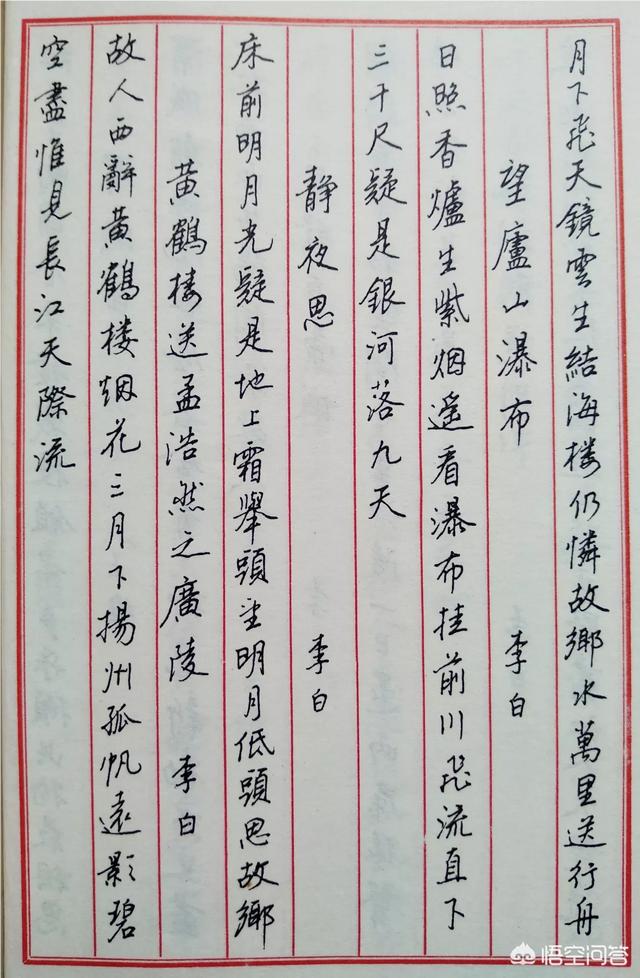 月下飛天鏡雲生結海楼仍憐故鄉水萬里送行舟
望廬山瀑布 李白
日照香爐生紫烟遥看瀑布挂前川飛流直下
三千尺疑是銀河落九天
静夜思 李白
床前明月光疑是地上霜舉頭望明月低頭思故鄉
黄鶴楼送孟浩然之廣陵 李白
故人西辭黄鶴楼烟花三月下揚州孤帆遠影碧
空盡惟見長江天際流
悟空问答